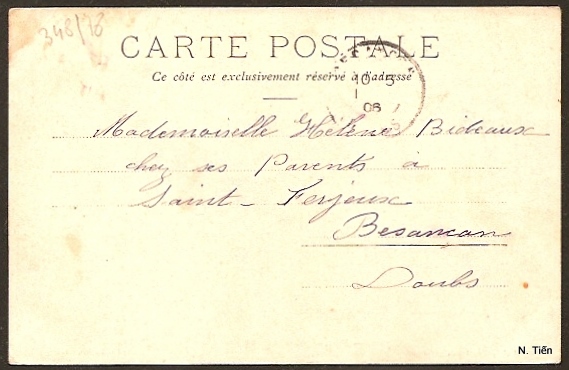 348/18
CARTE POSTALE
Ce côté est exclusivement réservé à l'adresse
10 - 3
06
Mademoiselle Hélène Bideaux
chez ses Parents à
Saint-Ferjeux
Besançon
Doubs
N. Tiến